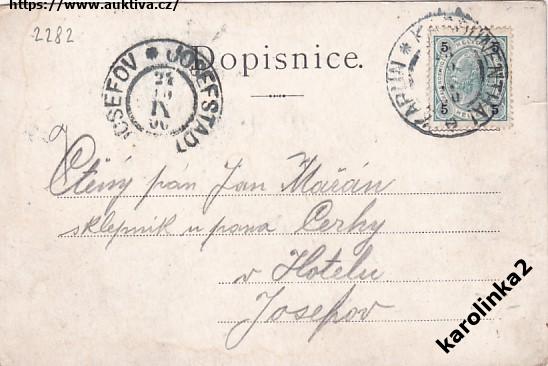 https://www.auktiva.cz/
2282
Dopisnice.
JOSEFOV * JOSEFSTADT
24
10
K
00
5 5
5 5
KARLÍN *
Ctěný pán Jan Mařán
sklepník u pana Cerhy
v Hotelu
Josefov
karolinka2